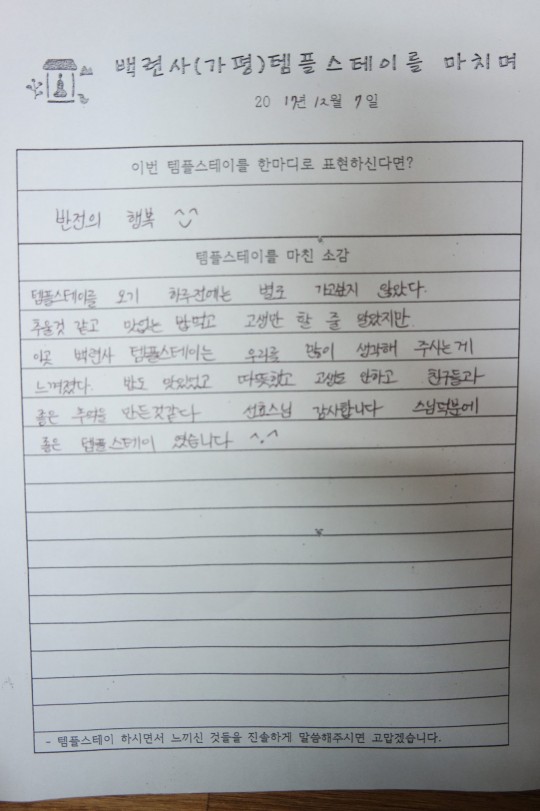 백련사(가평)템플스테이를 마치며
20 17년 12월 7일
이번 템플스테이를 한마디로 표현하신다면?
반전의 행복 ^^
템플스테이를 마친 소감
템플스테이를 오기 하루전에는 별로 가고싶지 않았다.
추울것 같고 맛없는 밥먹고 고생만 할 줄 알았지만
이곳 백련사 템플스테이는 우리를 많이 생각해 주시는게
느껴졌다. 밥도 맛있었고 따뜻했고 고생도 안하고 친구들과
좋은 추억을 만든것같다 선효스님 감사합니다 스님덕분에
좋은 템플스테이 였습니다 ^.^
- 템플스테이 하시면서 느끼신 것들을 진솔하게 말씀해주시면 고맙겠습니다.